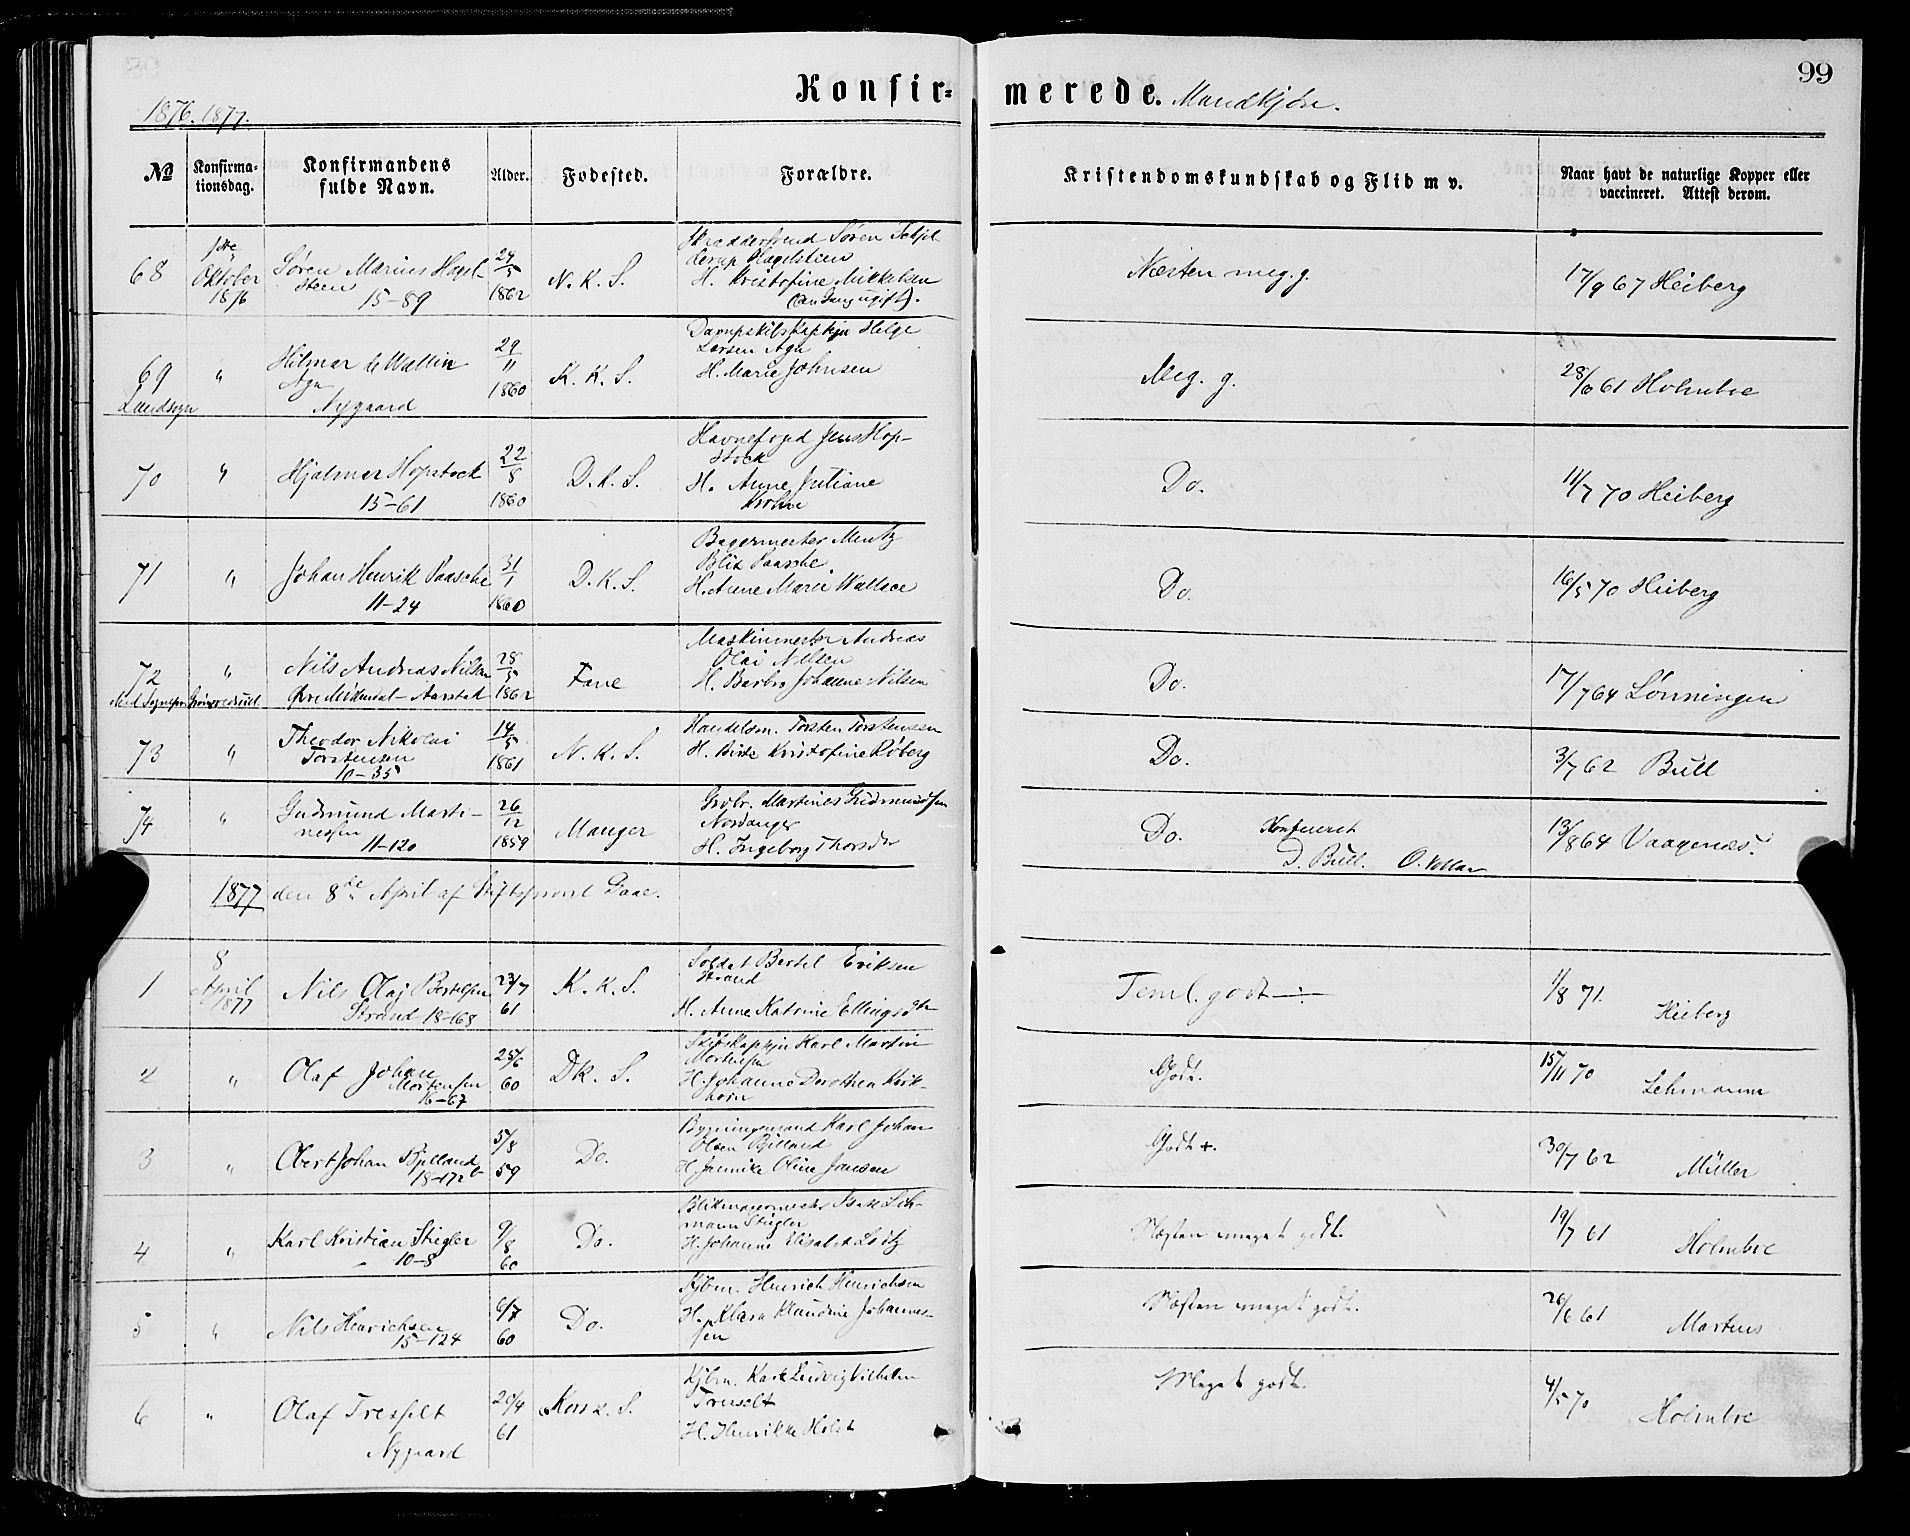 99
Konfir= merede. Mandkjøn.
1876. 1877.
No
Konfirma-
tionsdag.
Konfirmandens
fulde Navn.
Alder.
Fødested.
Forældre.
Kristendomskundskab og Flid m v.
Naar havt de naturlige Kopper eller
vaccineret. Attest derom.
68 1ste Oktober 1876
Søren Marius Hagel-
steen
15-89
24/5 1862
N. K. S.
Søren
Hagelsteen
H. Kristofine Mikkelsen
Næsten meg. g.
17/9 67 Heiberg
69 "
Landsogn
Hilmar de Wallin
Agn
Nygaard
29/11 1860
K. K. S.
Helge
Larsen Agn
H. Marie Johnsen
Meg. g.
61 Holmboe
70 "
Hjalmar Hopstock
15-61
22/8 1860
D. K. S.
Havnefoged Jens Hop-
stock
H. Anne Juliane
Krohn
Do.
11/7 70 Heiberg
71 "
Johan Henrik Paasche
11-24
31/1 1860
D. K. S.
Bagermester Mentz
Blix Paasche
H. Anne Marie Wallace
Do.
16/5 70 Heiberg
72 "
Nils Andreas Nilsen
Aarstad
28/5 1862
Fane
Maskinmester Andreas
Olai Nilsen
H. Barbro Johanne Nilsen
Do.
17/7 64 Lønningen
73 "
Theodor Nikolai
Torstensen
10-35
14/5 1861
N. K. S.
Handelsm. Torsten Torstensen
H. Kristofine Røberg
Do.
3/7 62 Bull
74 "
Gudmund Marti-
nessen
11-120
26/12 1859
Manger
Martines Gudmundsen
Nordanger
H. Ingeborg Thorsdr
Do. Konfereret
D. Bull.
13/8 64 Vaagenæs.
1877 den 8de April af Stiftsprovst Daae.
1 8 April 1877
Nils Olaj Bertelsen
Strand 18-168
23/7 61
K. K. S.
Soldat Bertel Eriksen
Strand
H. Anne Katrine Ellingsdtr
Teml. godt
1/8 71. Heiberg
2 "
Olaf Johan
Mortensen
16-67
25/6 60
DK. S.
Karl Martin
Mortensen
H. Johanne Dorothea Kirk-
horn
Godt.
15/11 70 Lehmann
3 "
Obert Johan Bjelland
18-172b
5/8 59
Do.
Bygningsmand Karl Johan
Olsen Bjelland
H. Jannike Oline Jonsen
Godt +.
30/7 62 Müller
4 "
Karl Kristian Stiegler
10-8
9/8 60
Do.
Blikmagermester Isak Leh-
mann Stiegler
H. Johanne Elisabet
Næsten meget godt.
19/7 61 Holmboe
5 "
Nils Henrichsen
15-124
6/7 60
Do.
Kjbm. Henrich Henrichsen
H. Klara Klaudine Johannes-
sen
Næsten meget godt.
26/6 61 Martens
6 "
Olaf Tresselt
Nygaard
20/4 61
Korsk. S.
Kjbm. Karl Ludvig Vilhelm
Tresselt
H. Henrikke Holst
Meget godt.
4/5 70 Holmboe